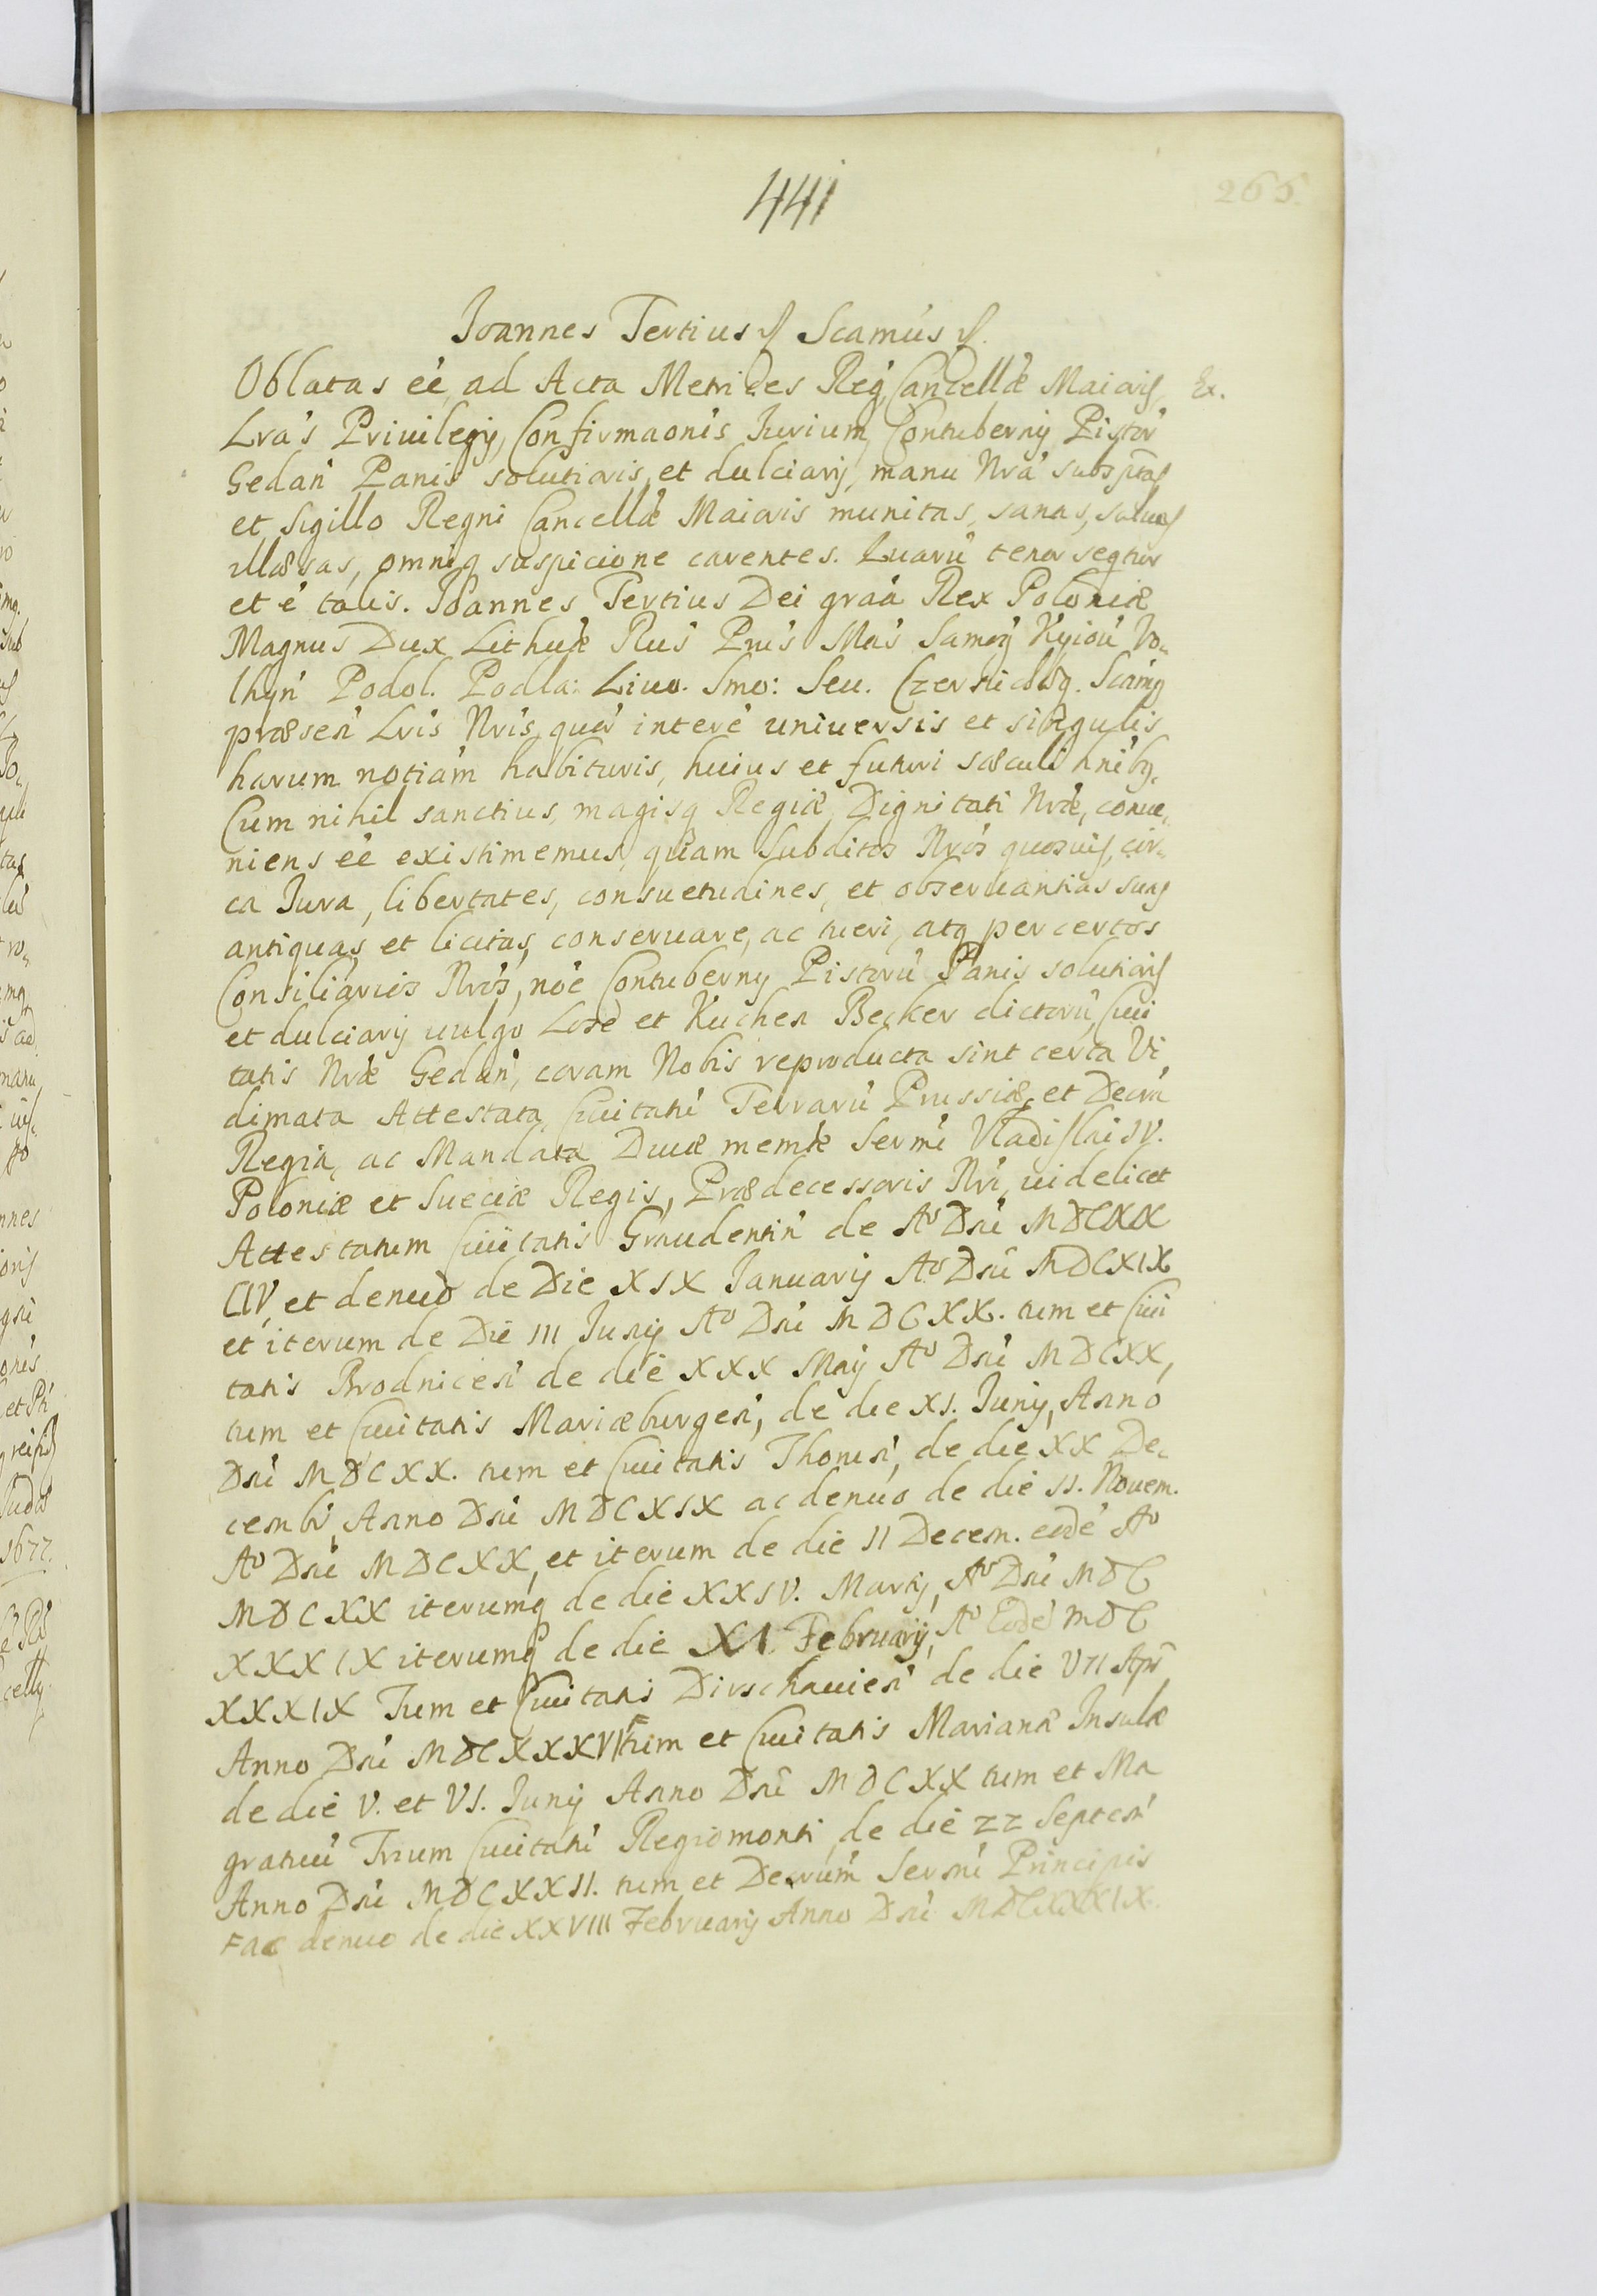 441
265.
Joannes Tertius &c. Scamus &c.
Oblatas eé, ad Acta Metrices Reg, Cancellæ Maioris Ex.
Lra's Privilegy, Confirmaonis Iurium, Contuberny Pistor'
Gedan' Panis solutioris, et dulciarij, manu Nra' subsptas
et Sigillo Regni Cancellæ Maioris munitas, sanas, saluas
illæsas, omniq suspicione carentes. Quaru' tenor seqtur
et é talis. Joannes Tertius Dei graa Rex Poloniæ
Magnus Dux Lithuæ Rus' Prus' Mas' Samog' Kyiou' Vo„
lhyn' Podol. Podla: Liuo. Smo: Seu. Czernicoßq. Scamq
præsen' Lris' Nris', quor' intere' uniuersis et singulis
harum notiam habituris, huius et futuri sæculi hnibq.
Cum nihil sanctius, magisq Regiæ, Dignitati Nræ, conue„
niens eé existimemus, quam Subditos Nros' quosuis, cir„
ca Iura, libertates, consuetudines, et obseruantias suas
antiquas, et licitas, conseruare, ac tueri, atq per certos
Consiliarios Nros', noé Contuberny Pistoru' Panis solutioris
et dulciarij uulgo Loze et Kuchen Becker dictoru', Ciui
tatis Nræ Gedan', coram Nobis reproducta sint certa Vi„
dimata Attestata, Ciuitatu' Terraru' Prussiæ, et Decra
Regia, ac Mandata Diuæ memiæ Sermi' Vladislai IV.
Poloniæ et Sueciæ Regis, Prædecessoris Nri', uidelicet
Attestatum Ciuitatis Graudentin' de Aº Dni' MDCXIX
CIV, et denuo de Die XIX Ianuarij Aº Dni' MDCXIX
et iterum de Die III Iunij Aº Dni' MDCXX. tum et Ciui
tatis Brodnicen' de die XXX Maij Aº Dni' MDCXX,
tum et Ciuitatis Mariæburgen', de die XI. Iunij, Anno
Dni' MDCXX. tum et Ciuitatis Thorun', de die XX De„
cembr', Anno Dni' MDCXIX ac denuo de die II. Nouem.
Aº Dni' MDCXX, et iterum de die II Decem. eode' Aº
MDCXX iterumq de die XXIV. Martij, Aº Dni' MDC
XXXIX iterumq de die XI. February, Aº Eode' MDC
XXXIX Tum et Ciuitatis Dirschauien' de die VII Apr'
Anno Dni' MDCXXXVI F tum et Ciuitatis Marianæ Insulæ
de die V. et VI. Iunij Anno Dni' MDCXX tum et Ma
gratuu' Trium Ciuitatu' Regiomonti, de die 22 Septen'
Anno Dni' MDCXXII. tum et Decrum' Sermi' Principis
F ac denuo de die XXVIII February Anno Dni' MDCXXXIX.